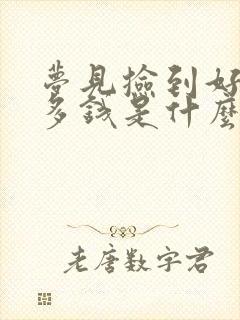 夢見撿到好
多錢是什麼
老唐數字君